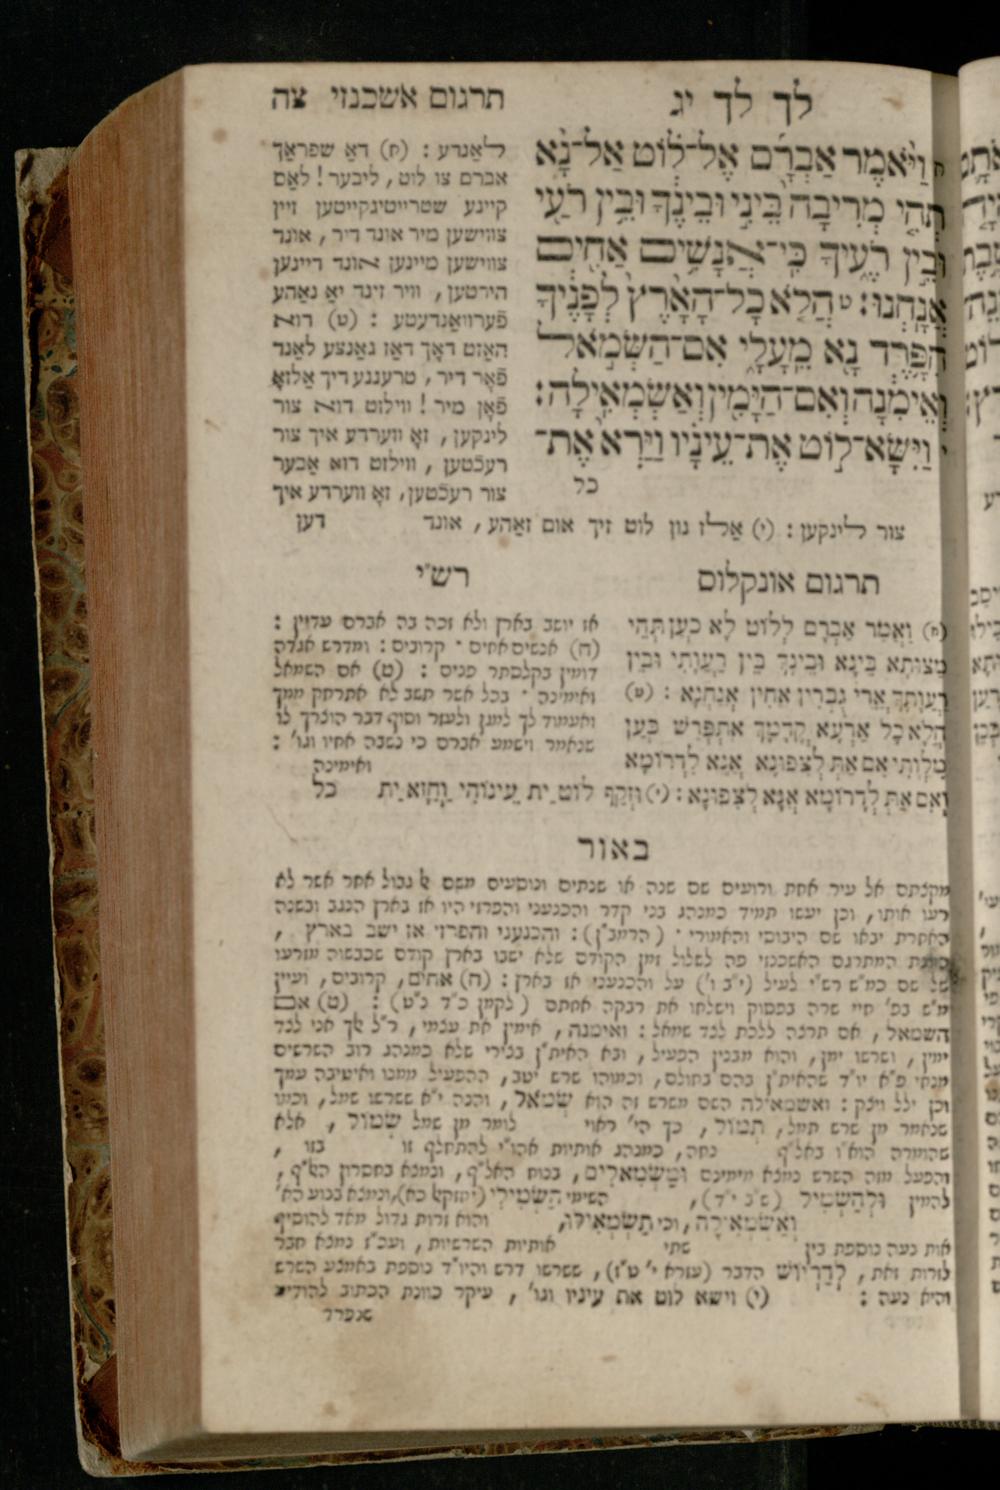 לך לך יג
תרגום אשכנזי צה
ח וַיֹּאמֶר אַבְרָם אֶל־לוֹט אַל־נָא
תְהִי מְרִיבָה בֵּינִי וּבֵינֶךָ וּבֵין רֹעַי
וּבֵין רֹעֶיךָ כִּי־אֲנָשִׁים אַחִים
אֲנָחְנוּ׃ ט הֲלֹא כָל־הָאָרֶץ לְפָנֶיךָ
הִפָּרֶד נָא מֵעָלָי אִם־הַשְּׂמֹאל
וְאֵימִנָה וְאִם־הַיָּמִין וְאַשְׂמְאִילָה׃
י וַיִּשָּׂא־לוֹט אֶת־עֵינָיו וַיַּרְא אֶת־
כל
לאַנדע : (ח) דאַ שפראַך
אברם צו לוט, ליבער! לאַס
קיינע שטרייטיגקייטען זיין
צווישען מיר אונד דיר, אונד
צווישען מיינען אונד דיינען
הירטען, וויר זינד יאַ נאַהע
פֿערוואַנדעטע : (ט) דוא
האַזט דאָך דאַז גאַנצע לאַנד
פֿאָר דיר, טרעננע דיך אַלזאָ
פֿאָן מיר! ווילזט דוא צור
לינקען, זאָ ווערדע איך צור
רעכטען, ווילזט דוא אָבער
צור רעכטען, זאָ ווערדע איך
צור לינקען : (י) אַלז נון לוט זיך אום זאַהע, אונד דען
תרגום אונקלוס
(ח) וַאֲמַר אַבְרָם לְלוֹט לָא כְעַן תְּהֵי
מַצּוּתָא בֵּינָא וּבֵינָךְ בֵּין רַעֲוָתִי וּבֵין
רַעֲוָתָךְ אֲרֵי גֻבְרִין אַחִין אֲנָחְנָא : (ט)
הֲלָא כָל אַרְעָא קֳדָמָךְ אִתְפָּרֵשׁ כְּעַן
מִלְוָתִי אִם אַתְּ לְצִפּוּנָא אֲנָא לְדָרוֹמָא
וְאִם אַתְּ לְדָרוֹמָא אֲנָא לְצִפּוּנָא : (י) וּזְקַף לוֹט יַת עֵינוֹהִי וַחֲזָא יַת כל
רש״י
אז יושב בארץ ולא זכה בה אברם עדיין :
(ח) אנשים אחים ׳ קרובים : ומדרש אגדה
דומין בקלסתר פנים : (ט) אם השמאל
ואימינה ׳ בכל אשר תשב לא אתרחק ממך
ואעמוד לך למגן ולעזר וסוף דבר הוצרך לו
שנאמר וישמע אברם כי נשבה אחיו וגו׳ :
ואימינה
באור
מקנתם אל עיר אחת ורועים שם שנה או שנתים ונוסעים משם אל גבול אחר אשר לא
רעו אותו, וכן יעשו תמיד כמנהג בני קדר והכנעני והפרזי היו אז בארץ הנגב ובשנה
האחרת יבאו שם היבוסי והאמורי ׳ (הרמב״ן) : והכנעני והפרזי אז ישב בארץ ,
כוונת המתרגם האשכנזי פה לשלול זמן הקודם שלא ישבו בארץ קודם שכבשוה מזרעו
של שם כמ״ש רש״י לעיל (י״ב ו׳) על והכנעני אז בארץ : (ח) אחים, קרובים, ועיין
מ״ש בפ׳ חיי שרה בפסוק וישלחו את רבקה אחתם (לקמן כ״ד נ״ט) : (ט) אם
השמאל, אם תרצה ללכת לצד שמאל : ואימנה, אימין את עצמי, ר״ל אלך אני לצד
ימין, ושרשו ימן, והוא מבנין הפעיל, ובא האית״ן בצירי שלא כמנהג רוב השרשים
מנחי פ״א יו״ד שהאית״ן בהם בחולם, וכמוהו שרש יטב, ההפעיל ממנו ואיטיבה עמך
וכן ילל וינק : ואשמאילה השם משרש זה הוא שְׂמֹאל, והנה י״א ששרשו שמל, וכמו
שנאמר מן שרש תמל, תְּמוֹל, כך הי׳ ראוי לומר מן שמל שְׂמוֹל, אלא
שהומרה הוא״ו באל״ף נחה, כמנהג אותיות אהו״י להתחלף זו בזו ,
והפעל מזה השרש נמצא מימינם וּמַשְׂמִאלִים, בנוח האל״ף, ונמצא בחסרון האל״ף,
להמין וּלְהַשְׂמִיל (ש״ב י״ד), השימי הַשְׂמִילִי (יחזקאל כא), ונמצא בנוע הא׳
וְאַשְׂמְאִילָה, וכי תַשְׂמְאִילוּ, והוא זרות גדול מאד להוסיף
אות נעה נוספת בין שתי אותיות השרשיות, ועכ״ז נמצא חבר
לזרות זאת, לְדַרְיוֹשׁ הדבר (עזרא י׳ ט״ז), ששרשו דרש והיו״ד נוספת באמצע השרש
והיא נעה : (י) וישא לוט את עיניו וגו׳ , עיקר כוונת הכתוב להודיע
אנפרד